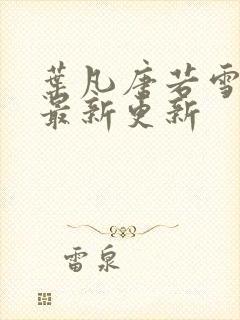 葉凡唐若雪
最新更新
雷泉